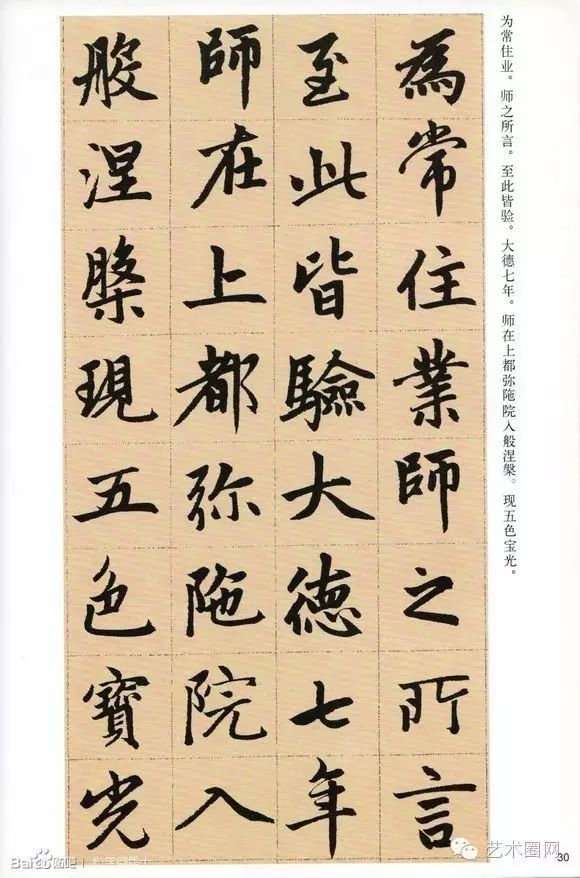 为常住业。师之所言。至此皆验。大德七年。师在上都弥陁院入般涅槃。现五色宝光。
為常住業師之所言
至此皆驗大德七年
師在上都弥陁院入
般涅槃現五色寶光
Bai贴吧
艺术圈网
30